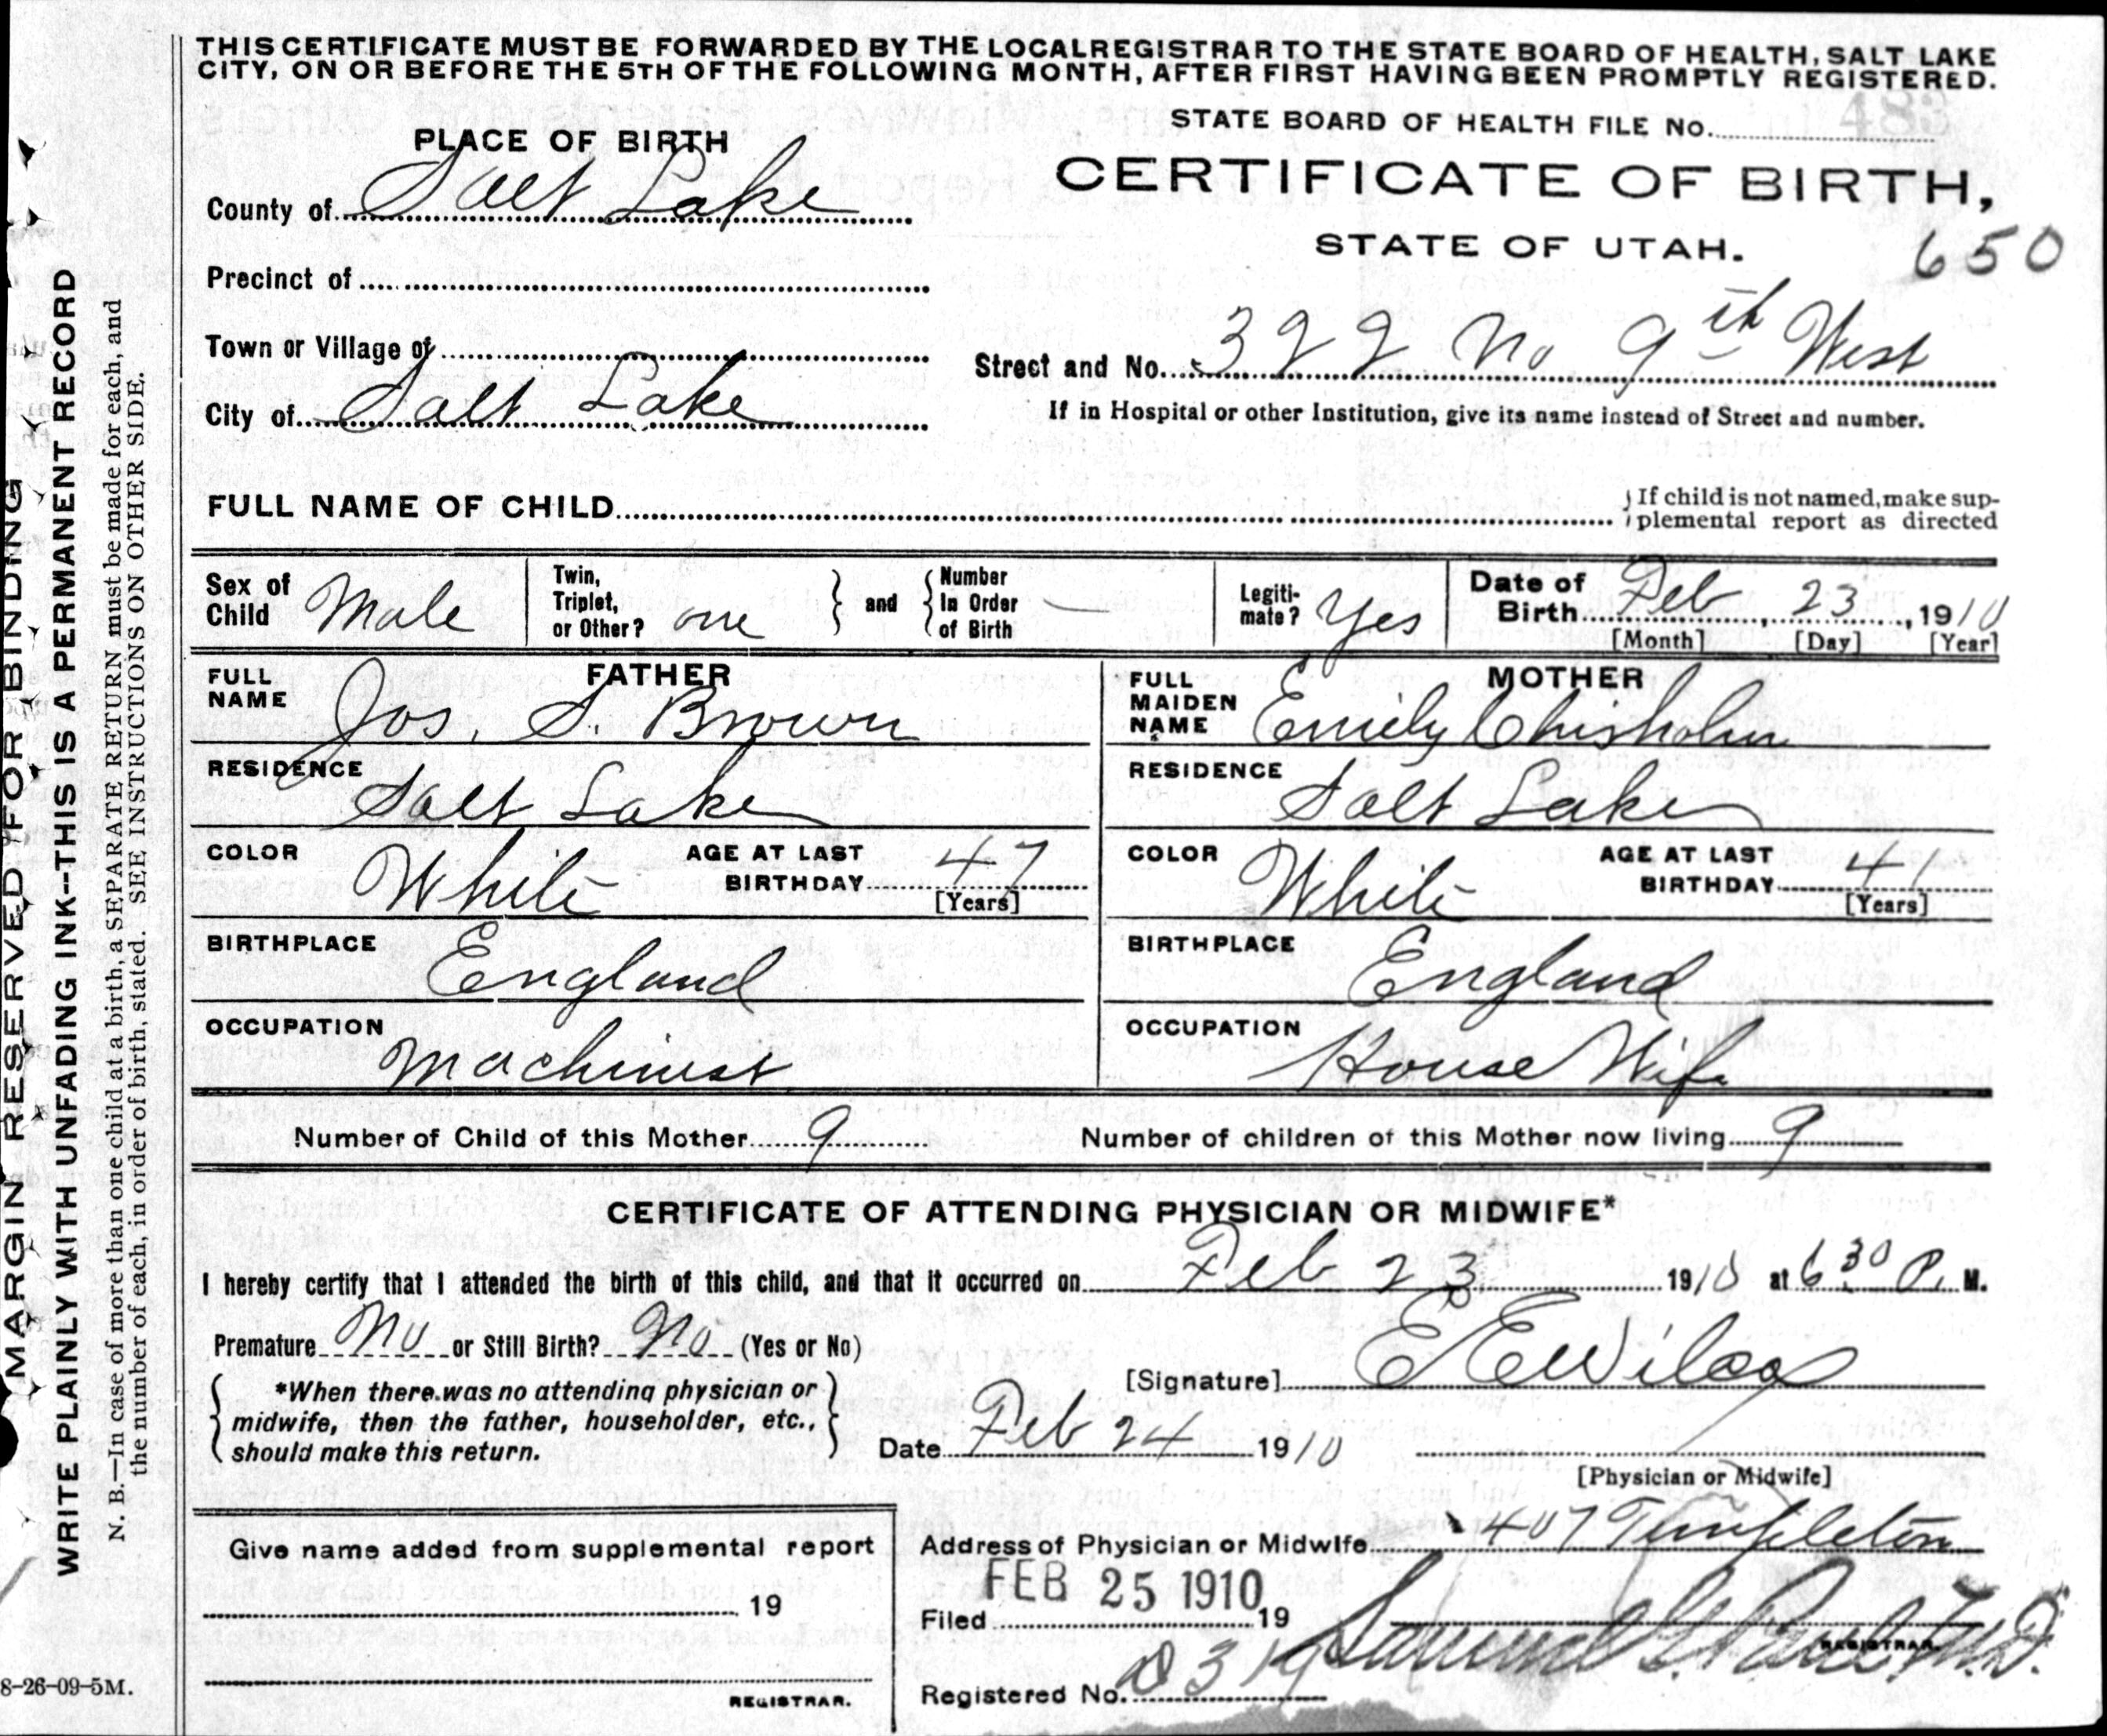 THIS CERTIFICATE MUST BE FORWARDED BY THE LOCAL REGISTRAR TO THE STATE BOARD OF HEALTH, SALT LAKE
CITY, ON OR BEFORE THE 5TH OF THE FOLLOWING MONTH, AFTER FIRST HAVING BEEN PROMPTLY REGISTERED.
STATE BOARD OF HEALTH FILE No. 483
PLACE OF BIRTH
CERTIFICATE OF BIRTH,
County of Salt Lake
STATE OF UTAH. 650
Precinct of
Town or Village of
Street and No. 322 No 9th West
City of Salt Lake
If in Hospital or other Institution, give its name instead of Street and number.
FULL NAME OF CHILD
If child is not named, make sup-
plemental report as directed
Sex of Child Male
Twin, Triplet, or Other? one and Number In Order of Birth —
Legiti-mate? Yes
Date of Birth Feb, 23, 1910
[Month] [Day] [Year]
FATHER
FULL NAME Jos. S. Brown
RESIDENCE Salt Lake
COLOR White AGE AT LAST BIRTHDAY 47
[Years]
BIRTHPLACE England
OCCUPATION Machinist
MOTHER
FULL MAIDEN NAME Emily Chisholm
RESIDENCE Salt Lake
COLOR White AGE AT LAST BIRTHDAY 41
[Years]
BIRTHPLACE England
OCCUPATION House Wife
Number of Child of this Mother 9 Number of children of this Mother now living 9
CERTIFICATE OF ATTENDING PHYSICIAN OR MIDWIFE*
I hereby certify that I attended the birth of this child, and that it occurred on Feb 23 1910 at 6 30 P. M.
Premature No or Still Birth? No (Yes or No)
[Signature] E E Wilcox
*When there was no attending physician or
midwife, then the father, householder, etc.,
should make this return.
Date Feb 24 1910
[Physician or Midwife]
Give name added from supplemental report
19
REGISTRAR.
Address of Physician or Midwife 407 Templeton
FEB 25 1910
Filed 19
REGISTRAR.
Registered No. 319
8-26-09-5M.
MARGIN RESERVED FOR BINDING
WRITE PLAINLY WITH UNFADING INK--THIS IS A PERMANENT RECORD
N. B.—In case of more than one child at a birth, a SEPARATE RETURN must be made for each, and
the number of each, in order of birth, stated. SEE INSTRUCTIONS ON OTHER SIDE.